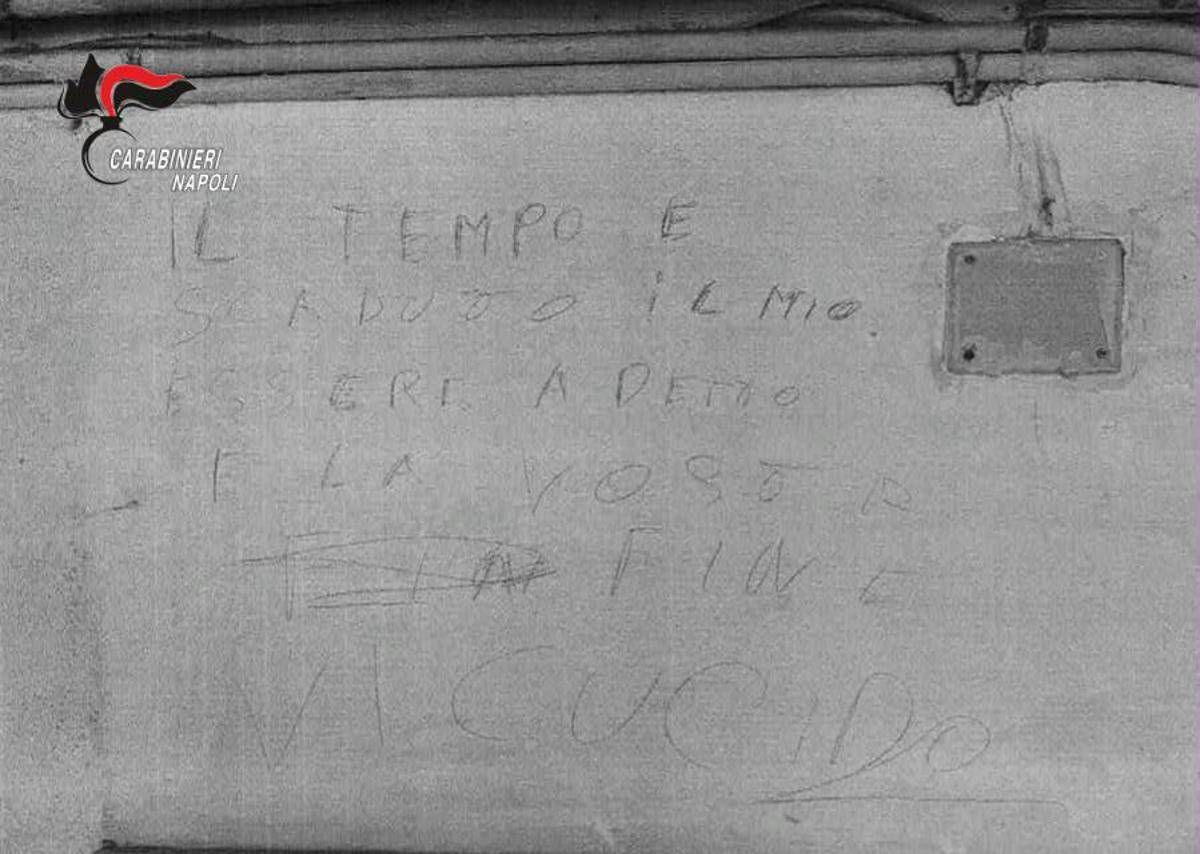 CARABINIERI
NAPOLI
IL TEMPO E
SCADUTO IL MIO
ESSERE A DETTO
E LA VOSTR
FIN FINE
VI CUCIDO